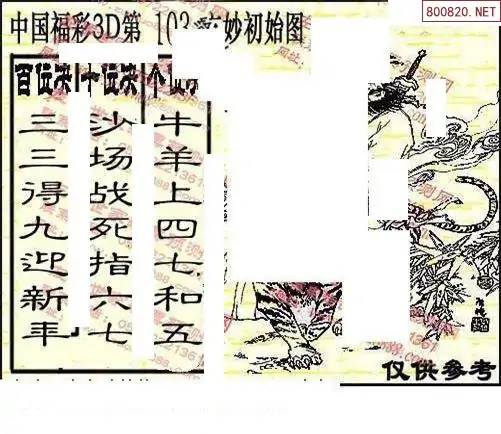 800820.NET
中国福彩3D第 103 妙初始图
百位决 十位决 个位
三三得九迎新年
沙场战死指六七
牛羊上四七和五
仅供参考